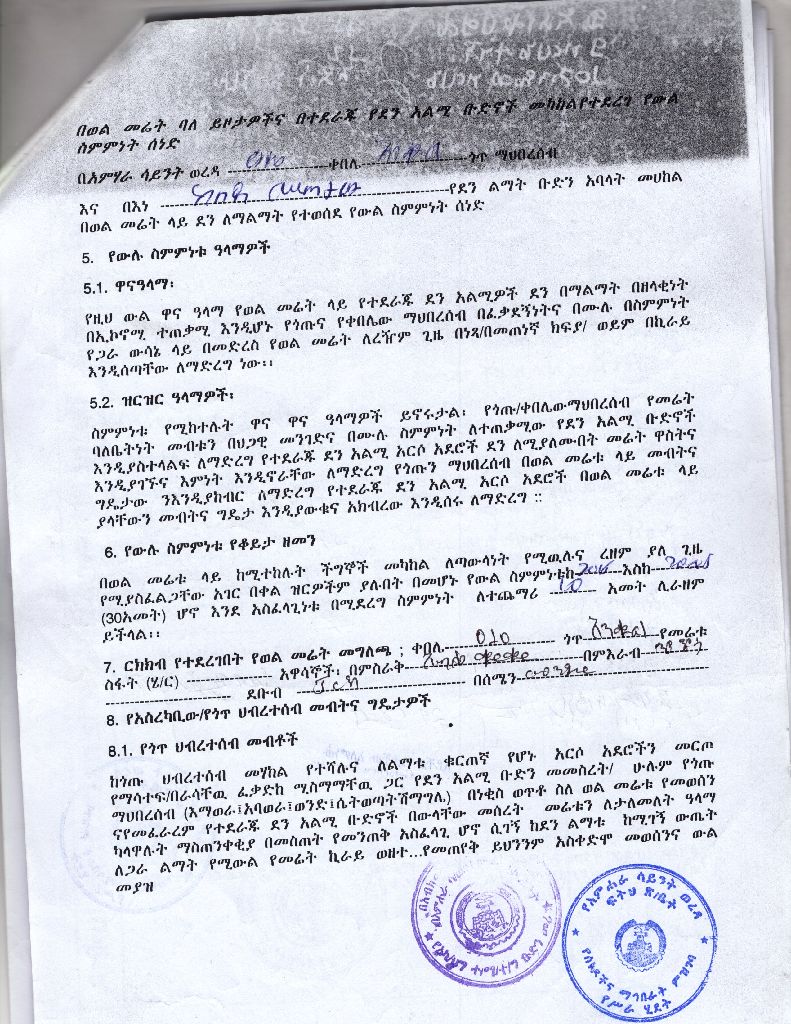 በወል መሬት ባለ ይዞታዎችና በተደራጁ የደን አልሚ ቡድኖች መካከልየተደረገ የውል
ስምምነት ሰነድ
በአምሃራ ሳይንት ወረዳ ቀበሌ ጎጥ ማህበረሰብ
እና በእነ የደን ልማት ቡድን አባላት መሀከል
በወል መሬት ላይ ደን ለማልማት የተወሰደ የውል ስምምነት ሰነድ
5. የውሉ ስምምነቱ ዓላማዎች
5.1. ዋናዓላማ፡
የዚህ ውል ዋና ዓላማ የወል መሬት ላይ የተደራጁ ደን አልሚዎች ደን በማልማት በዘላቂነት
በኢኮኖሚ ተጠቃሚ እንዲሆኑ የጎጡና የቀበሌው ማህበረሰብ በፈቃደኝነትና በሙሉ በስምምነት
የጋራ ውሳኔ ላይ በመድረስ የወል መሬት ለረዥም ጊዜ በነጻ/በመጠነኛ ክፍያ/ ወይም በኪራይ
እንዲሰጣቸው ለማድረግ ነው፡፡
5.2. ዝርዝር ዓላማዎች፡
ስምምነቱ የሚከተሉት ዋና ዋና ዓላማዎች ይኖሩታል፡ የጎጡ/ቀበሌውማህበረሰብ የመሬት
ባለቤትነት መብቱን በህጋዊ መንገድና በሙሉ ስምምነት ለተጠቃሚው የደን አልሚ ቡድኖች
እንዲያስተላልፍ ለማድረግ የተደራጁ ደን አልሚ አርሶ አደሮች ደን ለሚያለሙበት መሬት ዋስትና
እንዲያገኙና እምነት እንዲኖራቸው ለማድረግ የጎጡን ማህበረሰብ በወል መሬቱ ላይ መብትና
ግዴታው ንእንዲያከብር ለማድረግ የተደራጁ ደን አልሚ አርሶ አደሮች በወል መሬቱ ላይ
ያላቸውን መብትና ግዴታ እንዲያውቁና አክብረው እንዲሰሩ ለማድረግ ::
6. የውሉ ስምምነቱ የቆይታ ዘመን
በወል መሬቱ ላይ ከሚተከሉት ችግኞች መካከል ለጣውላነት የሚዉሉና ረዘም ያለ ጊዜ
የሚያስፈልጋቸው አገር በቀል ዝርዎችም ያሉበት በመሆኑ የውል ስምምነቱከ እስከ
(30አመት) ሆኖ እንደ አስፈላጊነቱ በሚደረግ ስምምነት ለተጨማሪ 10 አመት ሊራዘም
ይችላል፡፡
7. ርክክብ የተደረገበት የወል መሬት መግለጫ ; ቀበሌ 010 ጎጥ የመሬቱ
ስፋት (ሄ/ር) አዋሳኞች፡ በምስራቅ በምእራብ
ደቡብ በሰሜን
8. የአስረካቢው/የጎጥ ህብረተሰብ መብትና ግዴታዎች
8.1. የጎጥ ህብረተሰብ መብቶች
ከጎጡ ህብረተሰብ መሃከል የተሻሉና ለልማቱ ቁርጠኛ የሆኑ አርሶ አደሮችን መርጦ
የማሳተፍ/በራሳቸዉ ፈቃድከ ሚስማማቸዉ ጋር የደን አልሚ ቡድን መመስረት/ ሁሉም የጎጡ
ማህበረሰብ (እማወራ፤አባወራ፤ወንድ፤ሴትወጣትሽማግሌ) በነቂስ ወጥቶ ስለ ወል መሬቱ የመወሰን
ናየመፈራረም የተደራጁ ደን አልሚ ቡድኖች በውላቸው መሰረት መሬቱን ለታለመለት ዓላማ
ካላዋሉት ማስጠንቀቂያ በመስጠት የመንጠቅ አስፈላጊ ሆኖ ሲገኝ ከደን ልማቱ ከሚገኝ ውጤት
ለጋራ ልማት የሚውል የመሬት ኪራይ ወዘተ...የመጠየቅ ይህንንም አስቀድሞ መወሰንና ውል
መያዝ
የአምሐራ ሳይንት ወረዳ
ፍትህ ጽ/ቤት
የሰነዶችና ማኅበራት ምዝገባ
የሥራ ሂደት